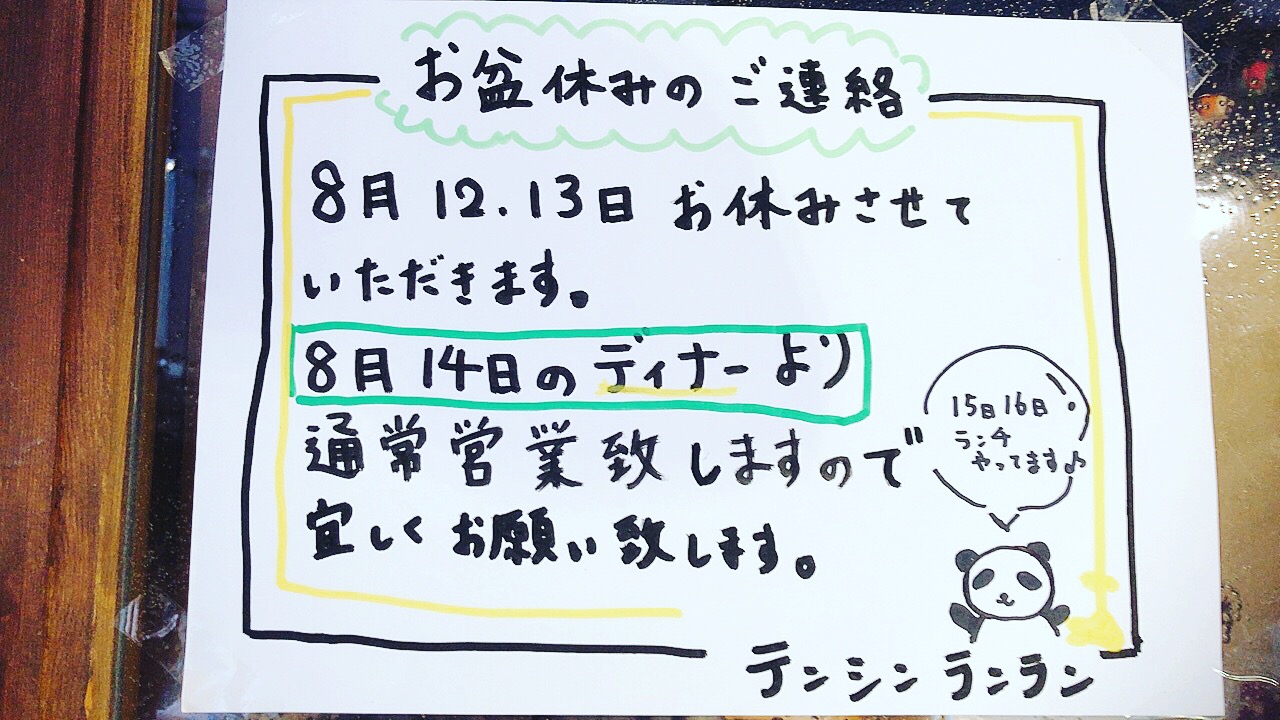 お盆休みのご連絡
8月12.13日 お休みさせて
いただきます。
8月14日のディナーより
通常営業致しますので
宜しくお願い致します。
15日16日
ランチ
やってます♪
テンシンランラン